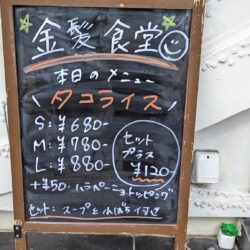 金髪食堂
本日のメニュー
タコライス
S:¥680-
M:¥780-
L:¥880-
セット
プラス
¥120
+¥50- ハラペーニョトッピング
セット: スープと